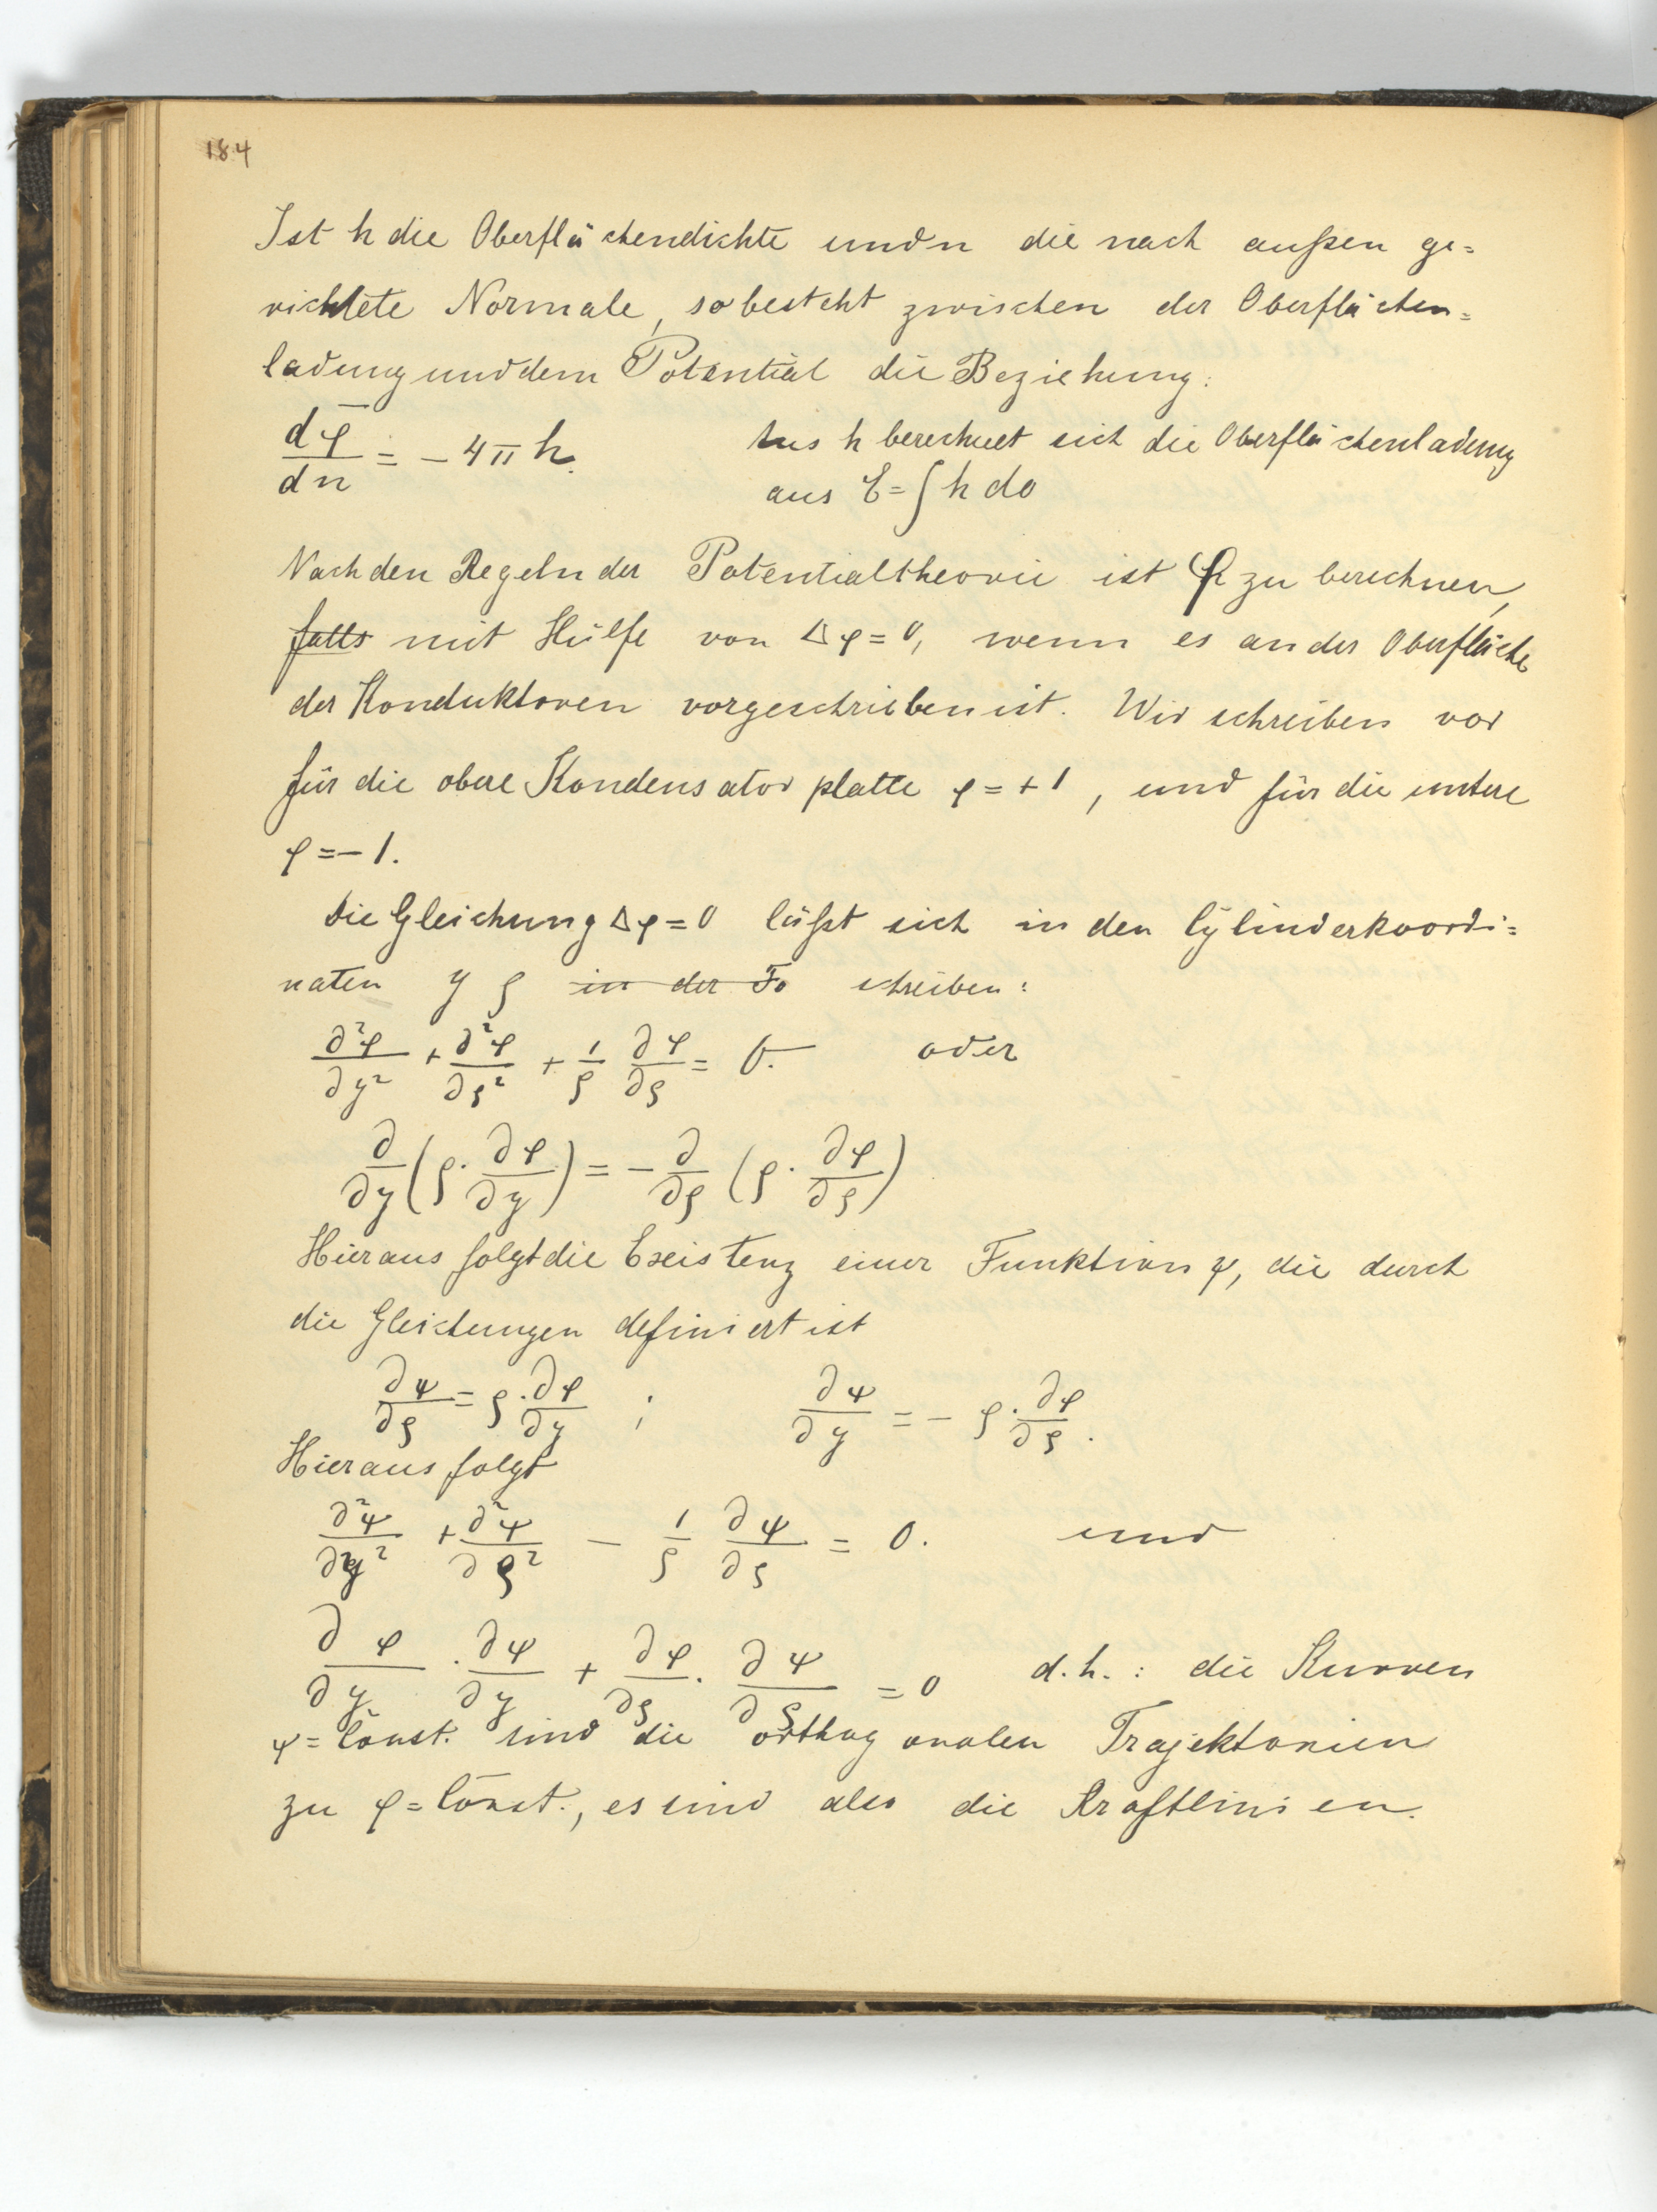 184
Ist h die Oberflächendichte und n die nach außen ge=
richtete Normale, so besteht zwischen der Oberflächen=
ladung und dem Potential die Beziehung:
dφ/dn = − 4π h. Aus h berechnet sich die Oberflächenladung
aus E = ∫ h do
Nach den Regeln der Potentialtheorie ist φ zu berechnen,
falls mit Hülfe von Δφ = 0, wenn es an der Oberfläche
der Konduktoren vorgeschrieben ist. Wir schreiben vor
für die obere Kondensatorplatte φ = + 1, und für die untere
φ = − 1.
Die Gleichung Δφ = 0 läßt sich in den Cylinderkoordi=
naten y ρ in der Fo schreiben:
∂²φ/∂y² + ∂²φ/∂ρ² + 1/ρ ∂φ/∂ρ = 0. oder
∂/∂y (ρ · ∂φ/∂y) = − ∂/∂ρ (ρ · ∂φ/∂ρ)
Hieraus folgt die Existenz einer Funktion ψ, die durch
die Gleichungen definiert ist
∂ψ/∂ρ = ρ · ∂φ/∂y ; ∂ψ/∂y = − ρ · ∂φ/∂ρ.
Hieraus folgt
∂²ψ/∂y² + ∂²ψ/∂ρ² − 1/ρ ∂ψ/∂ρ = 0. und
∂φ/∂y · ∂ψ/∂y + ∂φ/∂ρ · ∂ψ/∂ρ = 0 d.h.: die Kurven
ψ = Const. sind die orthogonalen Trajektorien
zu φ = Const., es sind also die Kraftlinien.